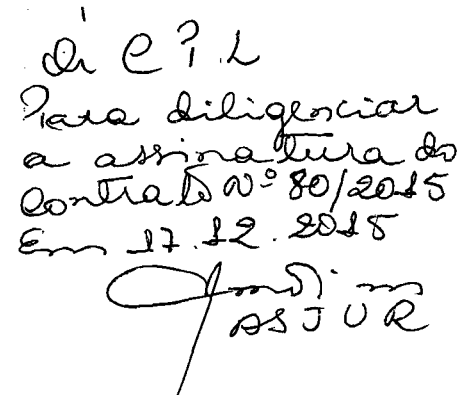 À CPL
Para diligenciar
a assinatura do
Contrato Nº 80/2015
Em 17.12.2015
ASJUR